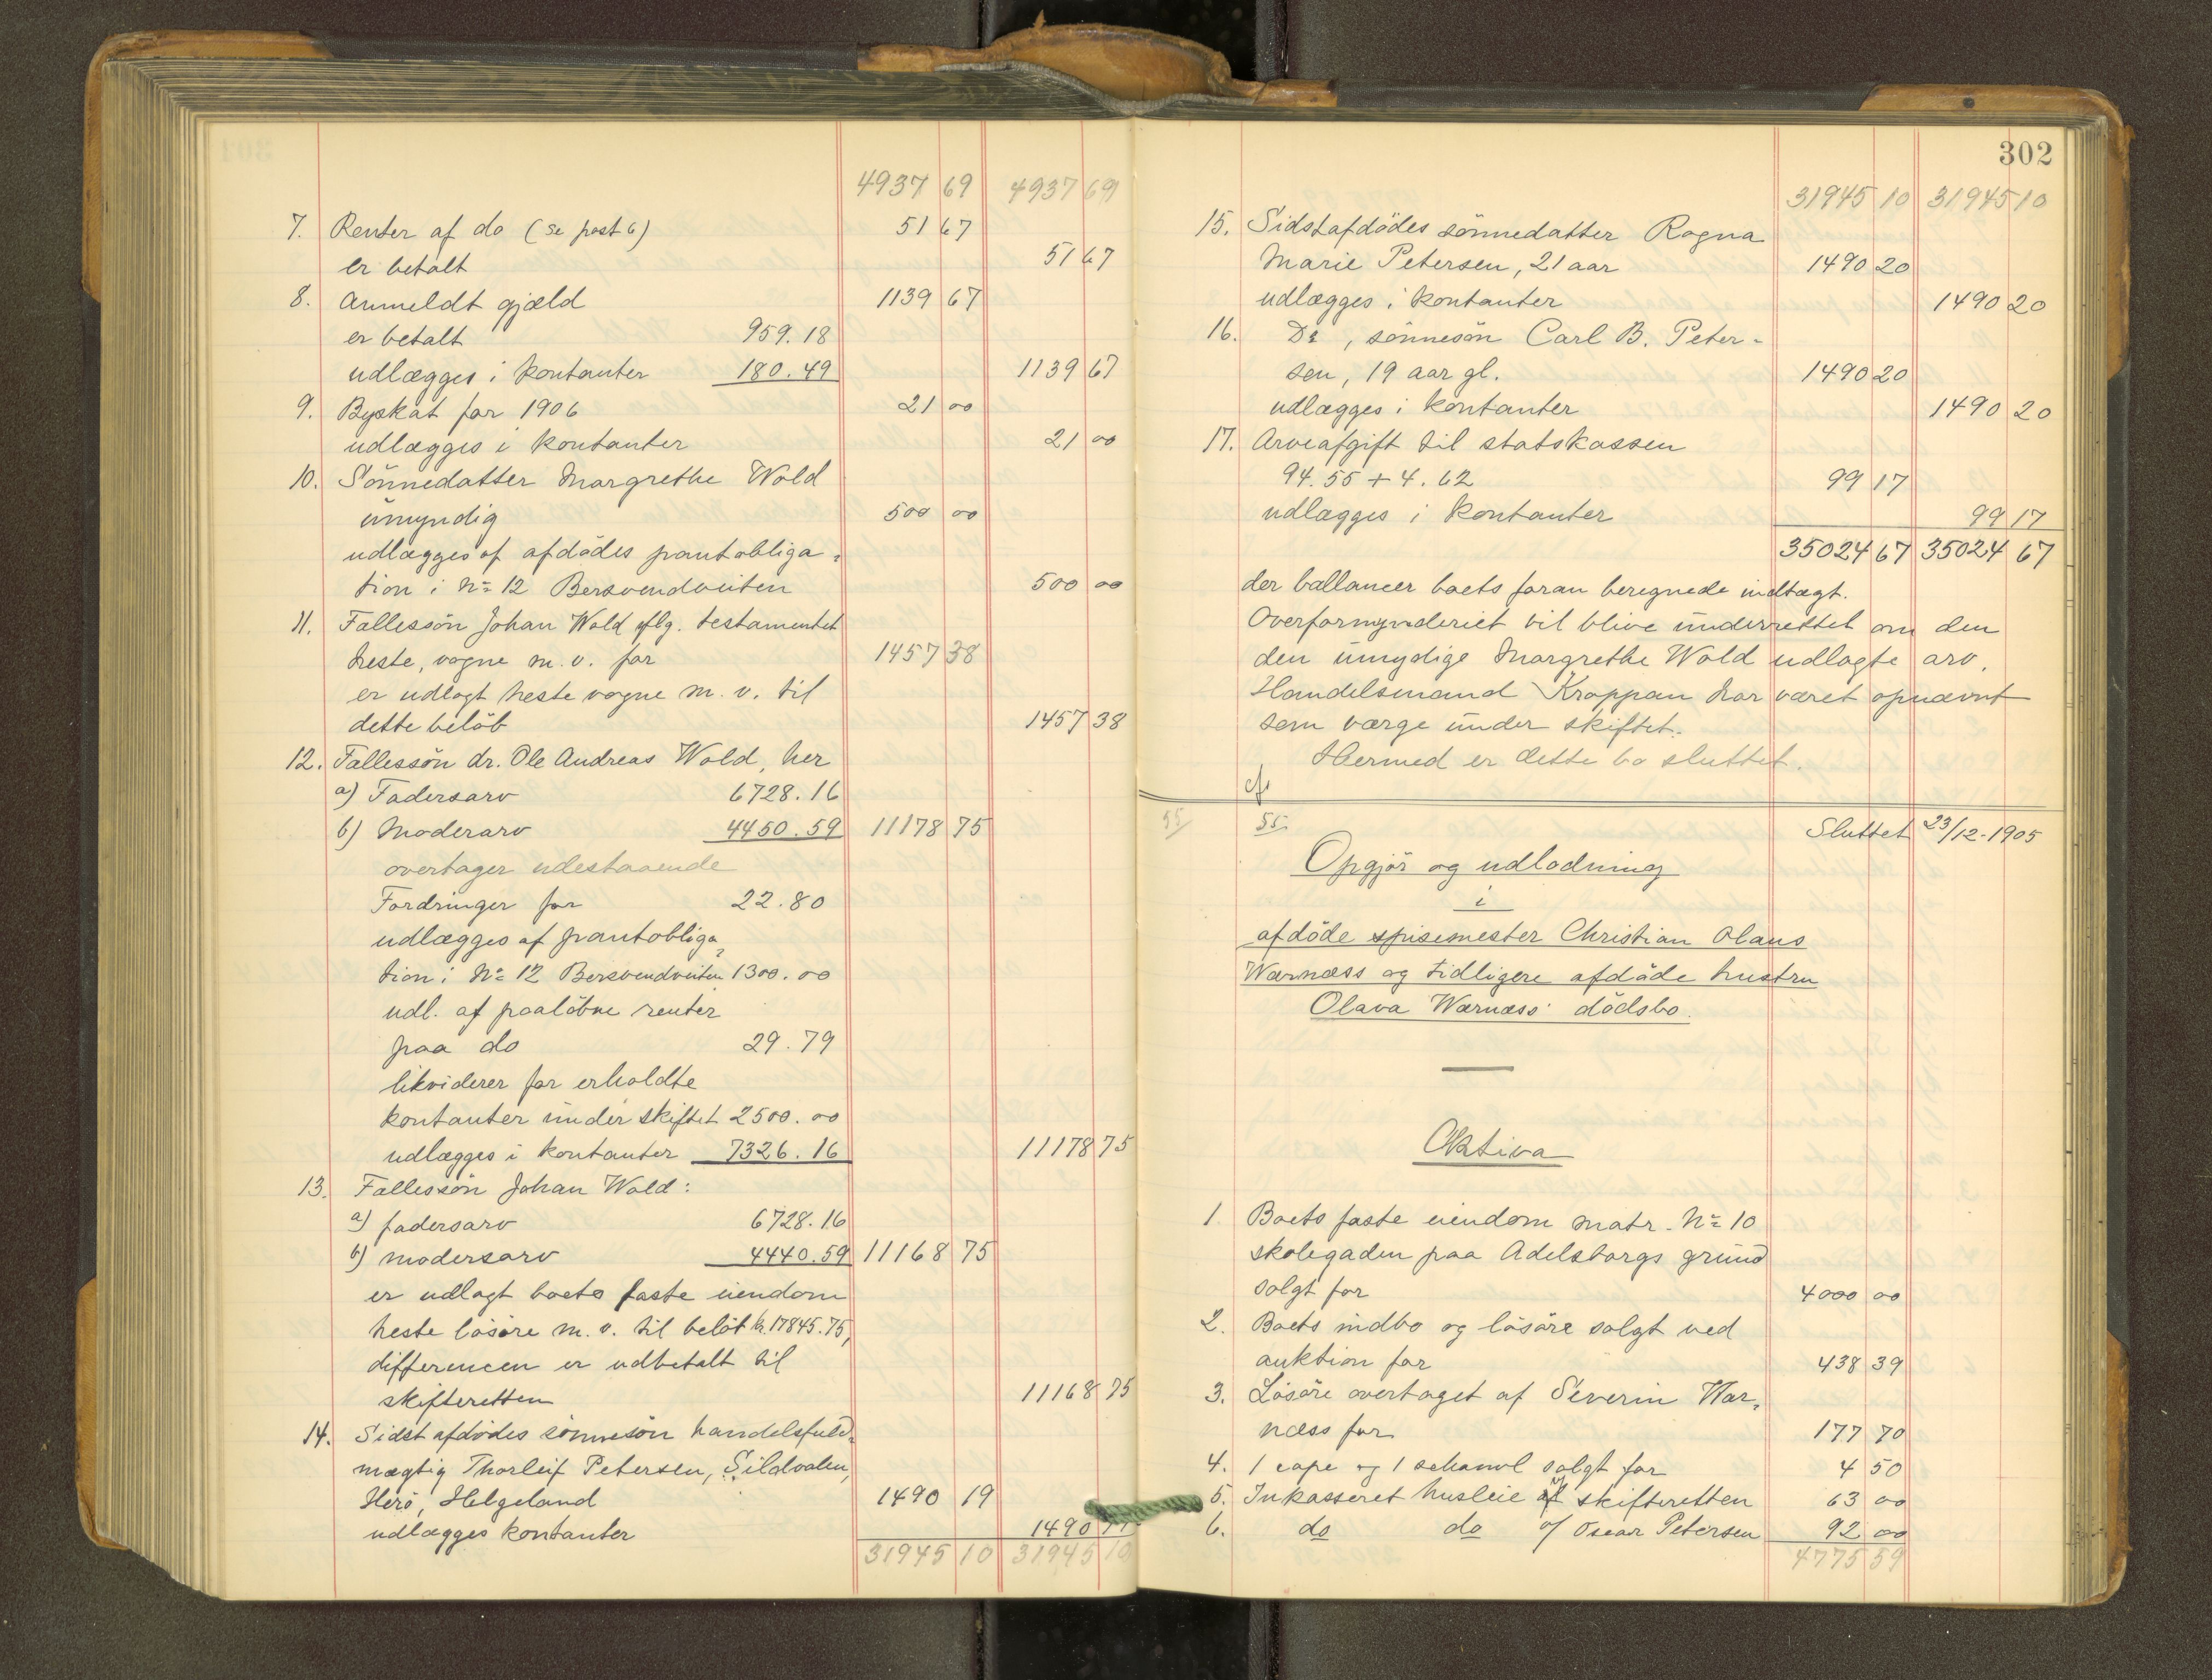 4937 69 4937 69
7. Renter af do (se post 6) 51 67
er betalt 51 67
8. Anmeldt gjæld 1139 67
er betalt 959.18
udlægges i kontanter 180.49 1139 67
9. Byskat for 1906 21 00
udlægges i kontanter 21 00
10. Sönnedatter Margrethe Wold
umyndig 500 00
udlægges af afdödes pantobliga-
tion i No 12 Bersvendveiten 500 00
11. Fællessön Johan Wold iflg. testamentet
heste, vogne m.v. for 1457 38
er udlagt heste vogne m.v. til
dette belöb 1457 38
12. Fællessön dr. Ole Andreas Wold, her
a) Fadersarv 6728.16
b) Moderarv 4450.59 11178 75
overtager udestaaende
Fordringer for 22.80
udlægges af pantobliga-
tion i No 12 Bersvendveiten 1300.00
udl. af paaløbne renter
paa do 29.79
likviderer for erholdte
kontanter under skiftet 2500.00
udlægges i kontanter 7326.16 11178 75
13. Fællessön Johan Wold:
a) fadersarv 6728.16
b) modersarv 4440.59 11168 75
er udlagt boets faste eiendom
heste løsøre m.v. til beløb kr. 17845.75,
differencen er udbetalt til
skifteretten 11168 75
14. Sidst afdødes sönnesön handelsfuld-
mægtig Thorleif Petersen, Sildvalen,
Herö, Helgeland 1490 19
udlægges kontanter 1490 19
31945 10 31945 10
302
31945 10 31945 10
15. Sidstafdödes sönnedatter Ragna
Marie Petersen, 21 aar 1490 20
udlægges i kontanter 1490 20
16. Do, sönnesön Carl B. Peter-
sen, 19 aar gl. 1490 20
udlægges i kontanter 1490 20
17. Arveafgift til statskassen
94.55 + 4.62 99 17
udlægges i kontanter 99 17
35024 67 35024 67
der ballancer boets foran beregnede indtægt.
Overformynderiet vil blive underrettet om den
den umydige Margrethe Wold udlagte arv.
Handelsmand Kroppan har været opnævnt
som værge under skiftet.
Hermed er dette bo sluttet.
cfr
55/ 55. Sluttet 23/12-1905
Opgjör og udlodning
i
afdöde spisemester Christian Olaus
Wærnæss og tidligere afdöde hustru
Olava Wærnæss' dödsbo.
Aktiva
1. Boets faste eiendom matr. No 10
skolegaden paa Adelsborgs grund
solgt for 4000 00
2. Boets indbo og lösöre solgt ved
auktion for 438 39
3. Lösöre overtaget af Severin Wær-
næss for 177 70
4. 1 cape og 1 schawl solgt for 4 50
5. Inkasseret husleie af skifteretten 63 00
6. do do af Oscar Petersen 92 00
4775 59